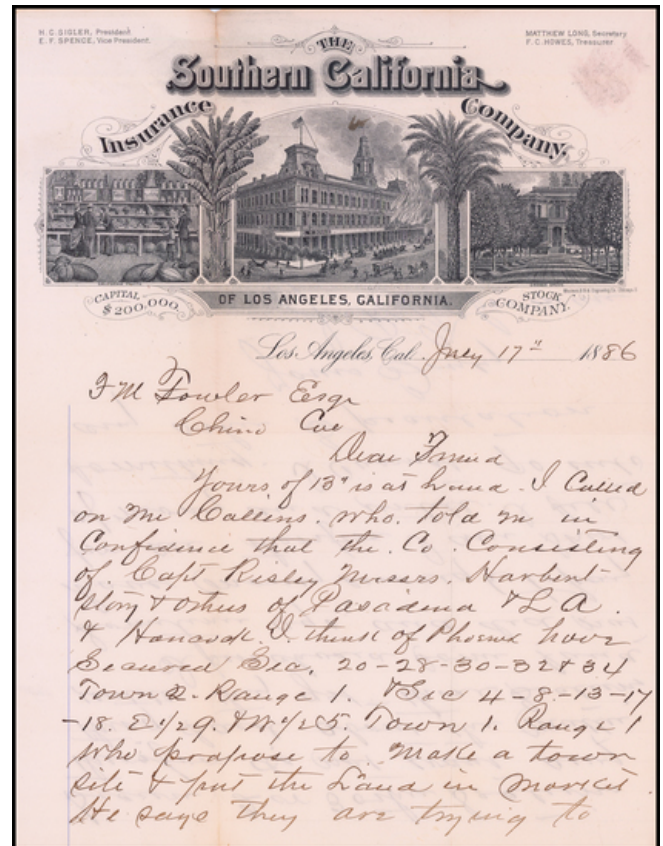 H. C. SIGLER, President.
E. F. SPENCE, Vice President.
MATTHEW LONG, Secretary
F. C. HOWES, Treasurer
THE
Southern California
Insurance Company,
CAPITAL
$200,000.
OF LOS ANGELES, CALIFORNIA.
STOCK
COMPANY.
Los Angeles, Cal. 17" 1886
F M Fowler Esqr
Chino
Dear Friend
Yours of 13" is at hand. I Called
on Mr Collins. who. told m in
Confidence that the. Co. Consisting
of. Capt Risley Messrs. Harbert
Story & others of Pasadena & L A.
& Hancock. I think of Phoenix have
Secured Sec. 20-28-30-32 & 34
Town 2. Range 1. & Sec 4-8-13-17
-18. E 1/2 9. & W 1/2 5. Town 1. Range 1
who propose to. Make a town
site & put the Land in market.
He says they are trying to